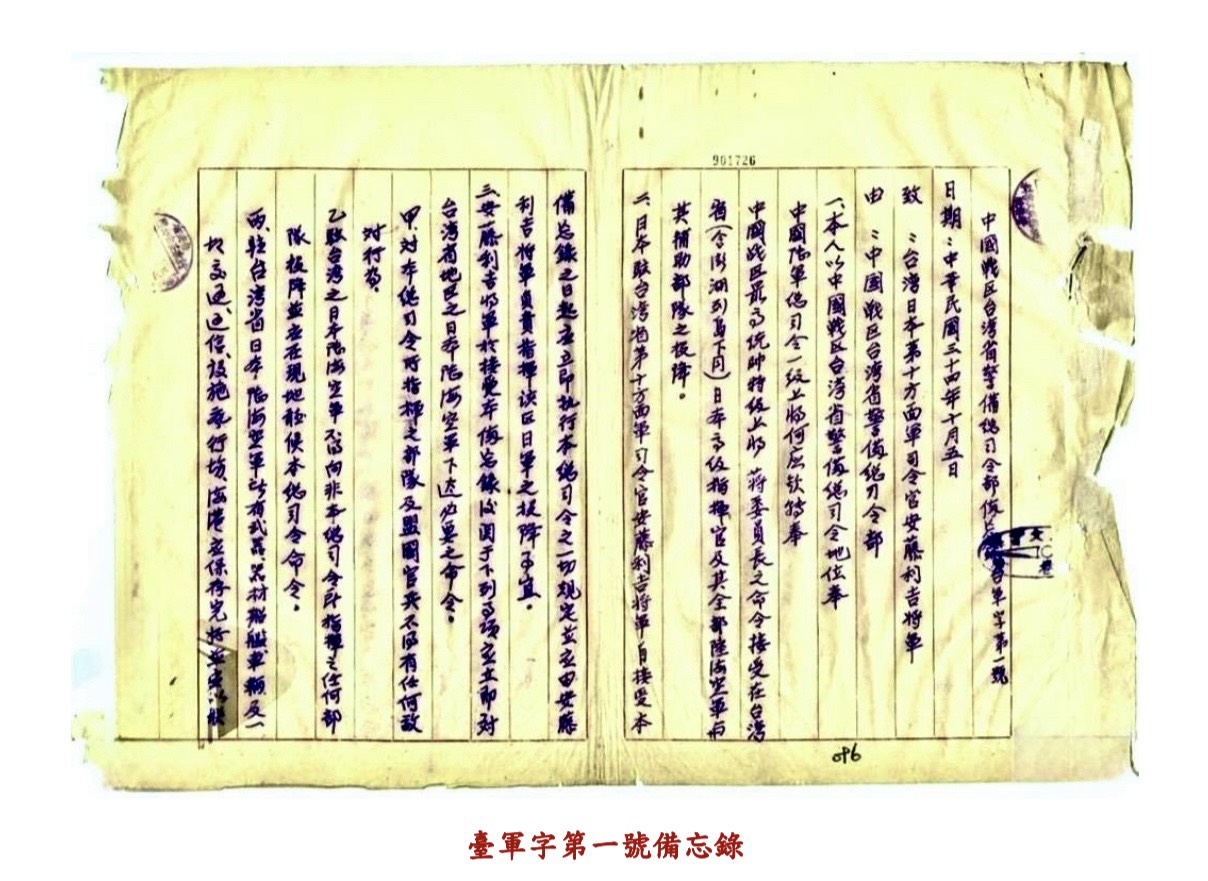 901726
中國戰区台湾省警備総司令部俻 軍字第一號
日期：中華民國三十四年十月五日
致：台湾日本第十方面軍司令官安藤利吉將軍
由：中国戰区台湾省警俻総司令部
一、本人以中國戰区台湾省警俻総司令地位奉
中國陸軍総司令一級上將何应欽轉奉
中國战区最高統帥特級上將 蔣委員長之命令接受在台湾
省(含澎湖列島下同)日本高級指揮官及其全部陸海空軍与
其補助部隊之投降。
二、日本駐台湾省第十方面軍司令官安藤利吉将軍自接受本
備忘錄之日起应立即执行本総司令之一切規定並应由安藤
利吉将軍負責指揮该区日軍之投降事宜。
三、安藤利吉将軍於接受本俻忘錄後関于下列事項应立即对
台湾省地区之日本陸海空軍下达必要之命令。
甲、对本総司令所指揮之部隊及盟國官兵不得有任何敌
对行為。
乙、駐台湾之日本陸海空軍不得向非本総司令所指揮之任何部
隊投降並应在現地聴候本総司令命令。
丙、駐台湾省日本陸海空軍所有武器、器材、船艦、車輛及一
切交通、通信、設施、飛行場、海港应保存完好並
096
臺軍字第一號備忘錄